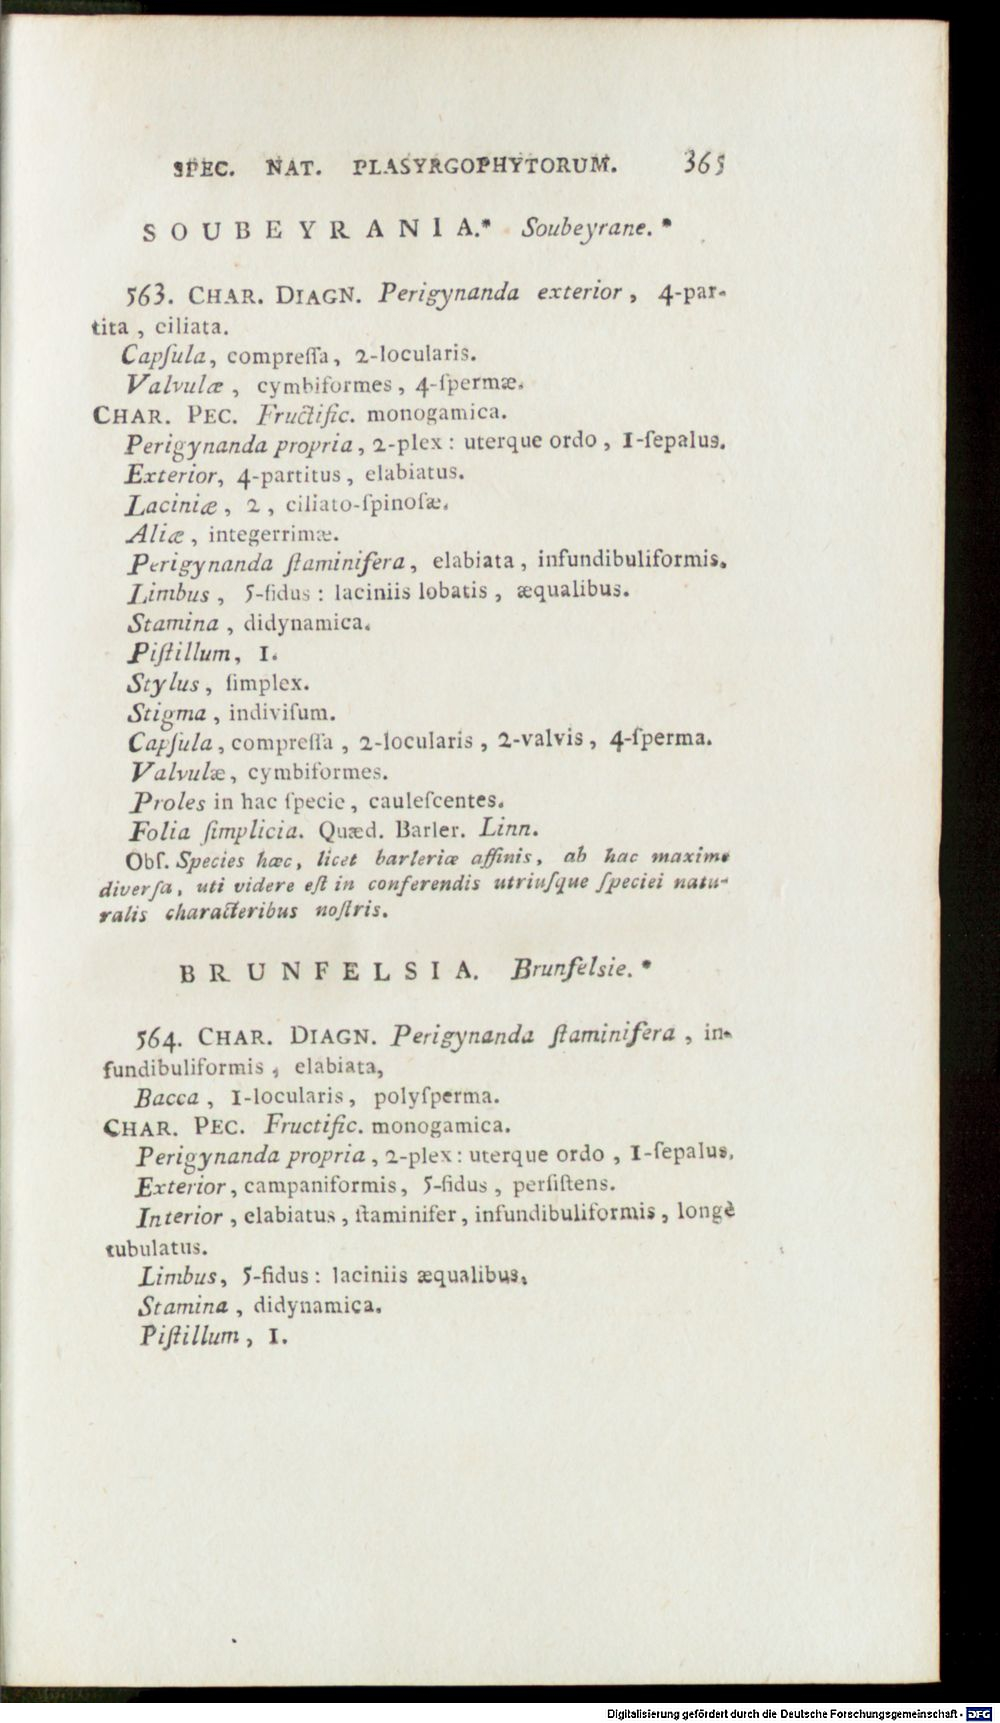 SPEC. NAT. PLASYRGOPHYTORUM. 365
SOUBEYRANIA.* Soubeyrane.*
563. CHAR. DIAGN. Perigynanda exterior, 4-par-
tita, ciliata.
Capſula, compreſſa, 2-locularis.
Valvulæ, cymbiformes, 4-ſpermæ.
CHAR. PEC. Fructific. monogamica.
Perigynanda propria, 2-plex: uterque ordo, 1-ſepalus.
Exterior, 4-partitus, elabiatus.
Laciniæ, 2, ciliato-ſpinoſæ.
Aliæ, integerrimæ.
Perigynanda ſtaminifera, elabiata, infundibuliformis.
Limbus, 5-fidus: laciniis lobatis, æqualibus.
Stamina, didynamica.
Piſtillum, 1.
Stylus, ſimplex.
Stigma, indiviſum.
Capſula, compreſſa, 2-locularis, 2-valvis, 4-ſperma.
Valvulæ, cymbiformes.
Proles in hac ſpecie, cauleſcentes.
Folia ſimplicia. Quæd. Barler. Linn.
Obſ. Species hæc, licet barleriæ affinis, ab hac maxime
diverſa, uti videre eſt in conferendis utriuſque ſpeciei natu-
ralis characteribus noſtris.
BRUNFELSIA. Brunfelsie.*
564. CHAR. DIAGN. Perigynanda ſtaminifera, in-
fundibuliformis, elabiata,
Bacca, 1-locularis, polyſperma.
CHAR. PEC. Fructific. monogamica.
Perigynanda propria, 2-plex: uterque ordo, 1-ſepalus.
Exterior, campaniformis, 5-fidus, perſiſtens.
Interior, elabiatus, ſtaminifer, infundibuliformis, longè
tubulatus.
Limbus, 5-fidus: laciniis æqualibus.
Stamina, didynamica.
Piſtillum, 1.
Digitalisierung gefördert durch die Deutsche Forschungsgemeinschaft - DFG